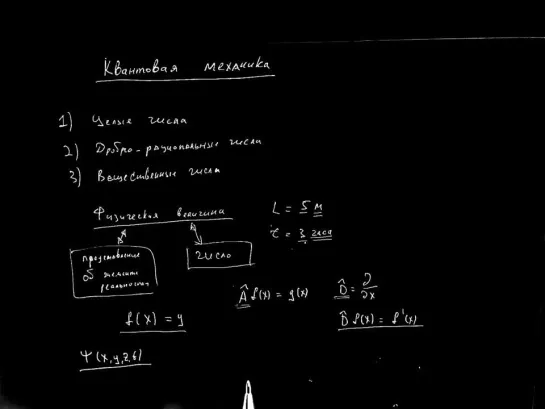 Квантовая механика
1) Целые числа
2) Дробно-рациональные числа
3) Вещественные числа
Физическая величина
L = 5 м
τ = 3 часа
представление
об элементе
реальности
число
Â f(x) = g(x)
D̂ = ∂/∂x
f(x) = y
D̂ f(x) = f'(x)
Ψ(x,y,z,t)